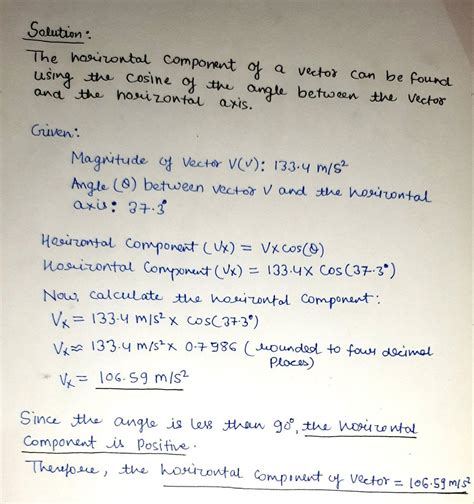 Solution:
The horizontal component of a vector can be found
using the cosine of the angle between the vector
and the horizontal axis.
Given:
Magnitude of Vector V(v): 133.4 m/s²
Angle (θ) between vector V and the horizontal
axis: 37.3°
Horizontal Component (Vx) = V x cos(θ)
Horizontal Component (Vx) = 133.4 x cos(37.3°)
Now, calculate the horizontal component:
Vx = 133.4 m/s² x cos(37.3°)
Vx ≈ 133.4 m/s² x 0.7986 (rounded to four decimal
places)
Vx = 106.59 m/s²
Since the angle is less than 90°, the horizontal
component is positive.
Therefore, the horizontal component of vector = 106.59 m/s²